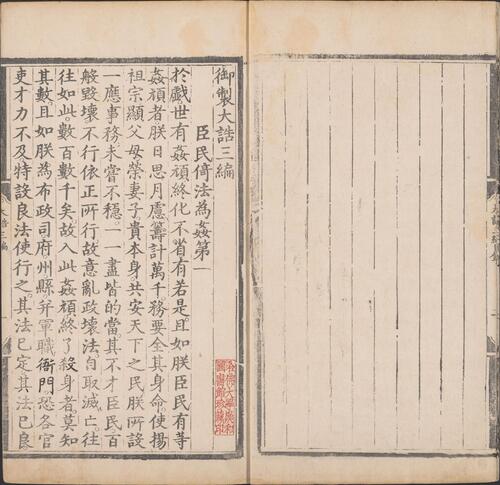 御製大誥三編
臣民倚法為姦第一
於戲世有姦頑終化不省有若是且如朕臣民有等
姦頑者朕日思月慮籌計萬千務要全其身命使揚
祖宗顯父母榮妻子貴本身共安天下之民朕所設
一應事務未嘗不穩一一盡皆的當其不才臣民百
般毀壞不行依正所行故意亂政壞法自取滅亡往
往如此數百數千矣故入此姦頑終了殺身者莫知
其數且如朕為布政司府州縣并軍職衙門恐各官
吏才力不及特設良法使行之其法已定其法已良
大誥三編
哈佛大學漢和
圖書館珍藏印